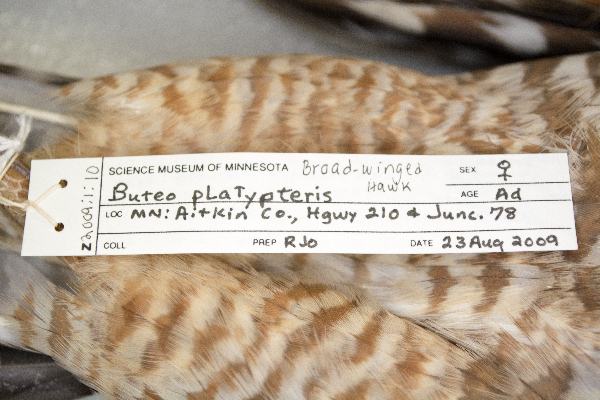 Z2009:1:10
SCIENCE MUSEUM OF MINNESOTA Broad-winged Hawk
SEX ♀
Buteo platypteris
AGE Ad
LOC MN: Aitkin Co., Hgwy 210 & Junc. 78
COLL PREP RJO DATE 23 Aug 2009